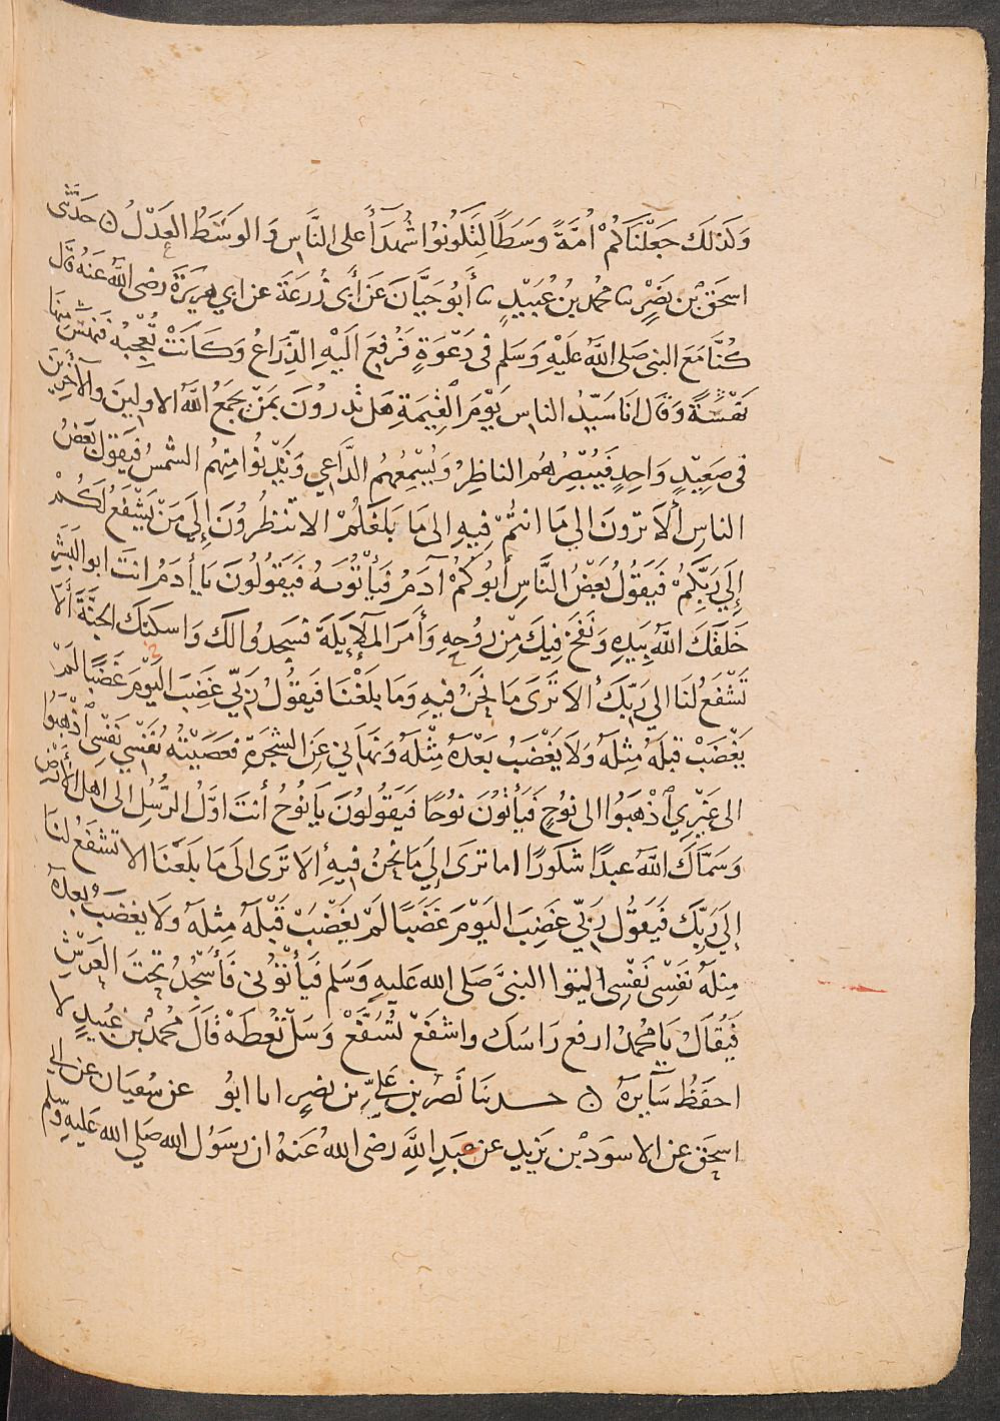 وَكَذلِكَ جَعَلْنَاكُمْ أُمَّةً وَسَطًا لِتَكُونُوا شُهَدَآءَ على النَّاسِ وَالوَسَطُ العَدْلُ ۞ حَدَّثَنِى
اسحَقُ بْن نَصْرٍ ثنا محمد بنُ عُبَيْدٍ ثنا أَبُو حَيَّانَ عَنْ أَبى زُرعَةَ عن ابي هريرَةَ رضى اللَّهُ عَنهُ قَالَ
كُنَّا مَعَ النبى صَلى اللَّهُ عَلَيْهِ وَسَلم فى دَعْوَةٍ فَرُفِعَ اِلَيهِ الذِّرَاعُ وَكَانَتْ تُعْجِبُهُ فَنَهَسَ مِنهَا
نَهْسَةً وَقَال اَنَا سَيِّدُ الناس يَوْمَ القِيٰمَةِ هَل تَدرُونَ بِمَنْ يَجمَعُ اللَّهُ الاولِينَ وَالآخِرِينَ
فى صَعِيْدٍ وَاحِدٍ فَيُبْصِرُهُم الناظِرُ وَيُسْمِعُهُم الدَّاعِي وَتَدْنُوا مِنهُم الشمسُ فيَقولُ بَعْضُ
الناسِ أَلاَ تَرَونَ الي مَا انتُمْ فِيهِ الى مَا بَلَغَكُمْ الا تَنظُرُونَ إِلَي مَنْ يَشْفَعُ لَكُمْ
إِلَي رَبِّكُمْ فَيَقُولُ بَعْضُ النَّاسِ أَبُوكُمْ آدَمُ فَيَأْتُونَهُ فيَقُولُونَ يَا أدَمُ انتَ ابو البَشَرِ
خَلَقَكَ اللَّهُ بِيَدِهِ وَنَفَخَ فِيكَ مِن رُوحِهِ وَأَمَرَ المَلآئِكَةَ فسَجدُوا لَك وَاسكَنَكَ الجَنَّةَ أَلاَ
تَشْفَعُ لنَا الي رَبِّكَ أَلا تَرَى مَا نَحنُ فيهِ وَمَا بلَغْنَا فَيَقُولُ رَبِّي غَضِبَ اليَوْمَ غَضَبًا لَمْ
يَغْضَبْ قبلَهُ مِثلَهُ وَلاَ يَغْضَبُ بَعْدَهُ مِثْلَهُ وَنَهاَنِي عَنِ الشجَرَةِ فعَصَيْتُه نَفْسِي نَفْسِى اذْهَبُوا
الى غَيْرِي اذْهَبُوا الى نوُحٍ فَيَأْتُونَ نوُحًا فَيَقُولُونَ يَا نُوحُ أنتَ اوَّلُ الرُّسُلِ الى اهلِ الأَرْضِ
وَسَمَّاكَ اللَّهُ عبدًا شكَورًا اما ترَى إِلَي مَا نَحنُ فيهِ أَلا تَرَى الَى مَا بَلَغْنَا الا تَشفَعُ لنَا
إِلَي رَبِّك فَيَقُولُ رَبِّي غَضِبَ اليَوْمَ غَضَبًا لَمْ يَغْضَبْ قَبْلَهُ مِثلهُ وَلا يغضَبُ بعدَهُ
مِثلَهُ نَفسِى نَفْسِى ائيتوا النبىَّ صَلى الله عَليهِ وَسَلم فَيَأْتوُنى فَأَسْجُدُ تَحتَ العَرْشِ
فَيُقَالُ يَا محُمدُ ارفع رَاسَكَ واشفَعْ تُشَفَّعْ وَسَلْ تُعْطَهْ قَالَ محُمدُ بن عُبَيدٍ لا
احفَظُ سَآيِرَهُ ۞ حدثنَا نَصرُ بن عَليِّ بن نصرٍ انا ابوُ عن سُفيَان عن ابي
اسحَق عن الاسوَدْ بن يَزيد عن عَبدِ اللَّهِ رضى اللهُ عَنهُ ان رسَوُل الله صَلي الله عَليهِ وسَلم